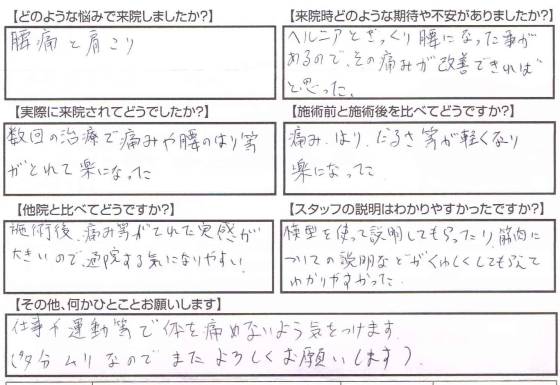 【どのような悩みで来院しましたか?】
腰痛と肩こり
【来院時どのような期待や不安がありましたか?】
ヘルニアとぎっくり腰になった事が
あるので、その痛みが改善できれば
と思った。
【実際に来院されてどうでしたか?】
数回の治療で痛みや腰のはり等
がとれて楽になった
【施術前と施術後を比べてどうですか?】
痛み、はり、だるさ等が軽くなり
楽になった
【他院と比べてどうですか?】
施術後、痛み等がとれた実感が
大きいので、通院する気になりやすい
【スタッフの説明はわかりやすかったですか?】
模型を使って説明してもらったり、筋肉に
ついての説明などがくわしくしてもらえて
わかりやすかった
【その他、何かひとことお願いします】
仕事や運動等で体を痛めないよう気をつけます
(多分ムリなのでまたよろしくお願いします)